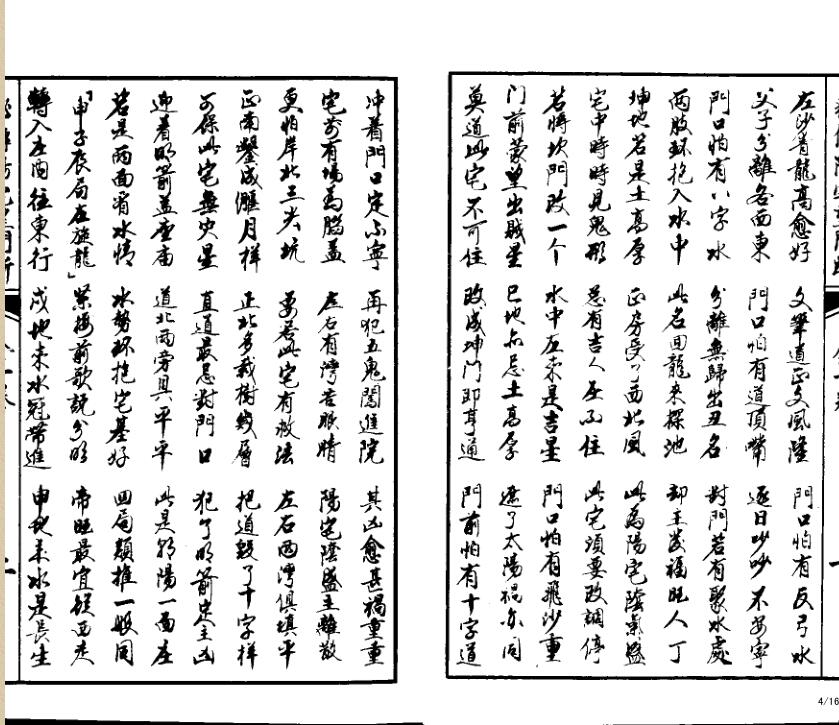 左沙青龍高愈好 文筆道正文風隆 門口怕有反弓水
父子分離各西東 門口怕有道頂嘴 逐日吵吵不安寧
門口怕有八字水 分離無歸出丑名 對門若有聚水處
兩股環抱入水中 此名回龍來探池 却主發福旺人丁
坤地若是土高厚 正房受了西北風 此為陽宅陰氣盛
宅中時時見鬼形 总有吉人在不住 此宅須要改調停
若將坎門改一个 水中在來是吉星 門口怕有飛沙重
门前蒙塵出賊星 巳地亦忌土高厚 遮了太陽禍亦同
莫道此宅不可住 改成坤門即亨通 門前怕有十字道
冲着門口定不寧 再犯五鬼闖進院 其凶愈甚禍重重
宅前有場為腦蓋 左右有灣苦眼睛 陽宅陰盛主離散
更怕岸北三尖坑 要若此宅有救法 左右兩灣俱填平
正南鑿成偃月樣 正北多栽樹幾層 把道毀了十字樣
可保此宅無灾星 直道最忌對門口 犯了明箭定主凶
迎着明箭蓋座廟 道北兩旁具平平 此是朝陽一面庄
若是兩面看水情 水勢環抱宅基好 四局類推一般同
「申子辰局左旋龍」 緊接前歌説分明 帝旺最宜從西走
轉入庄間往東行 戌地來水冠帶進 申地來水是長生
4/16